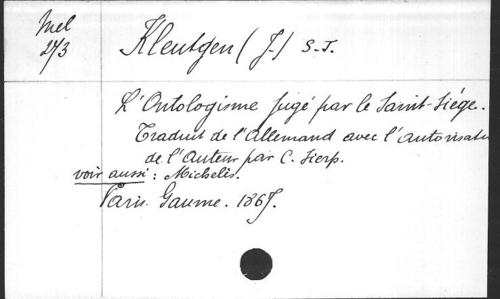 Mel
27/3
Kleutgen (J.) S.J.
L'Ontologisme jugé par le Saint-Siége.
Traduit de l'Allemand avec l'autorisatio
de l'auteur par C. Sierp.
voir aussi : Michelis.
Paris. Gaume. 1867.